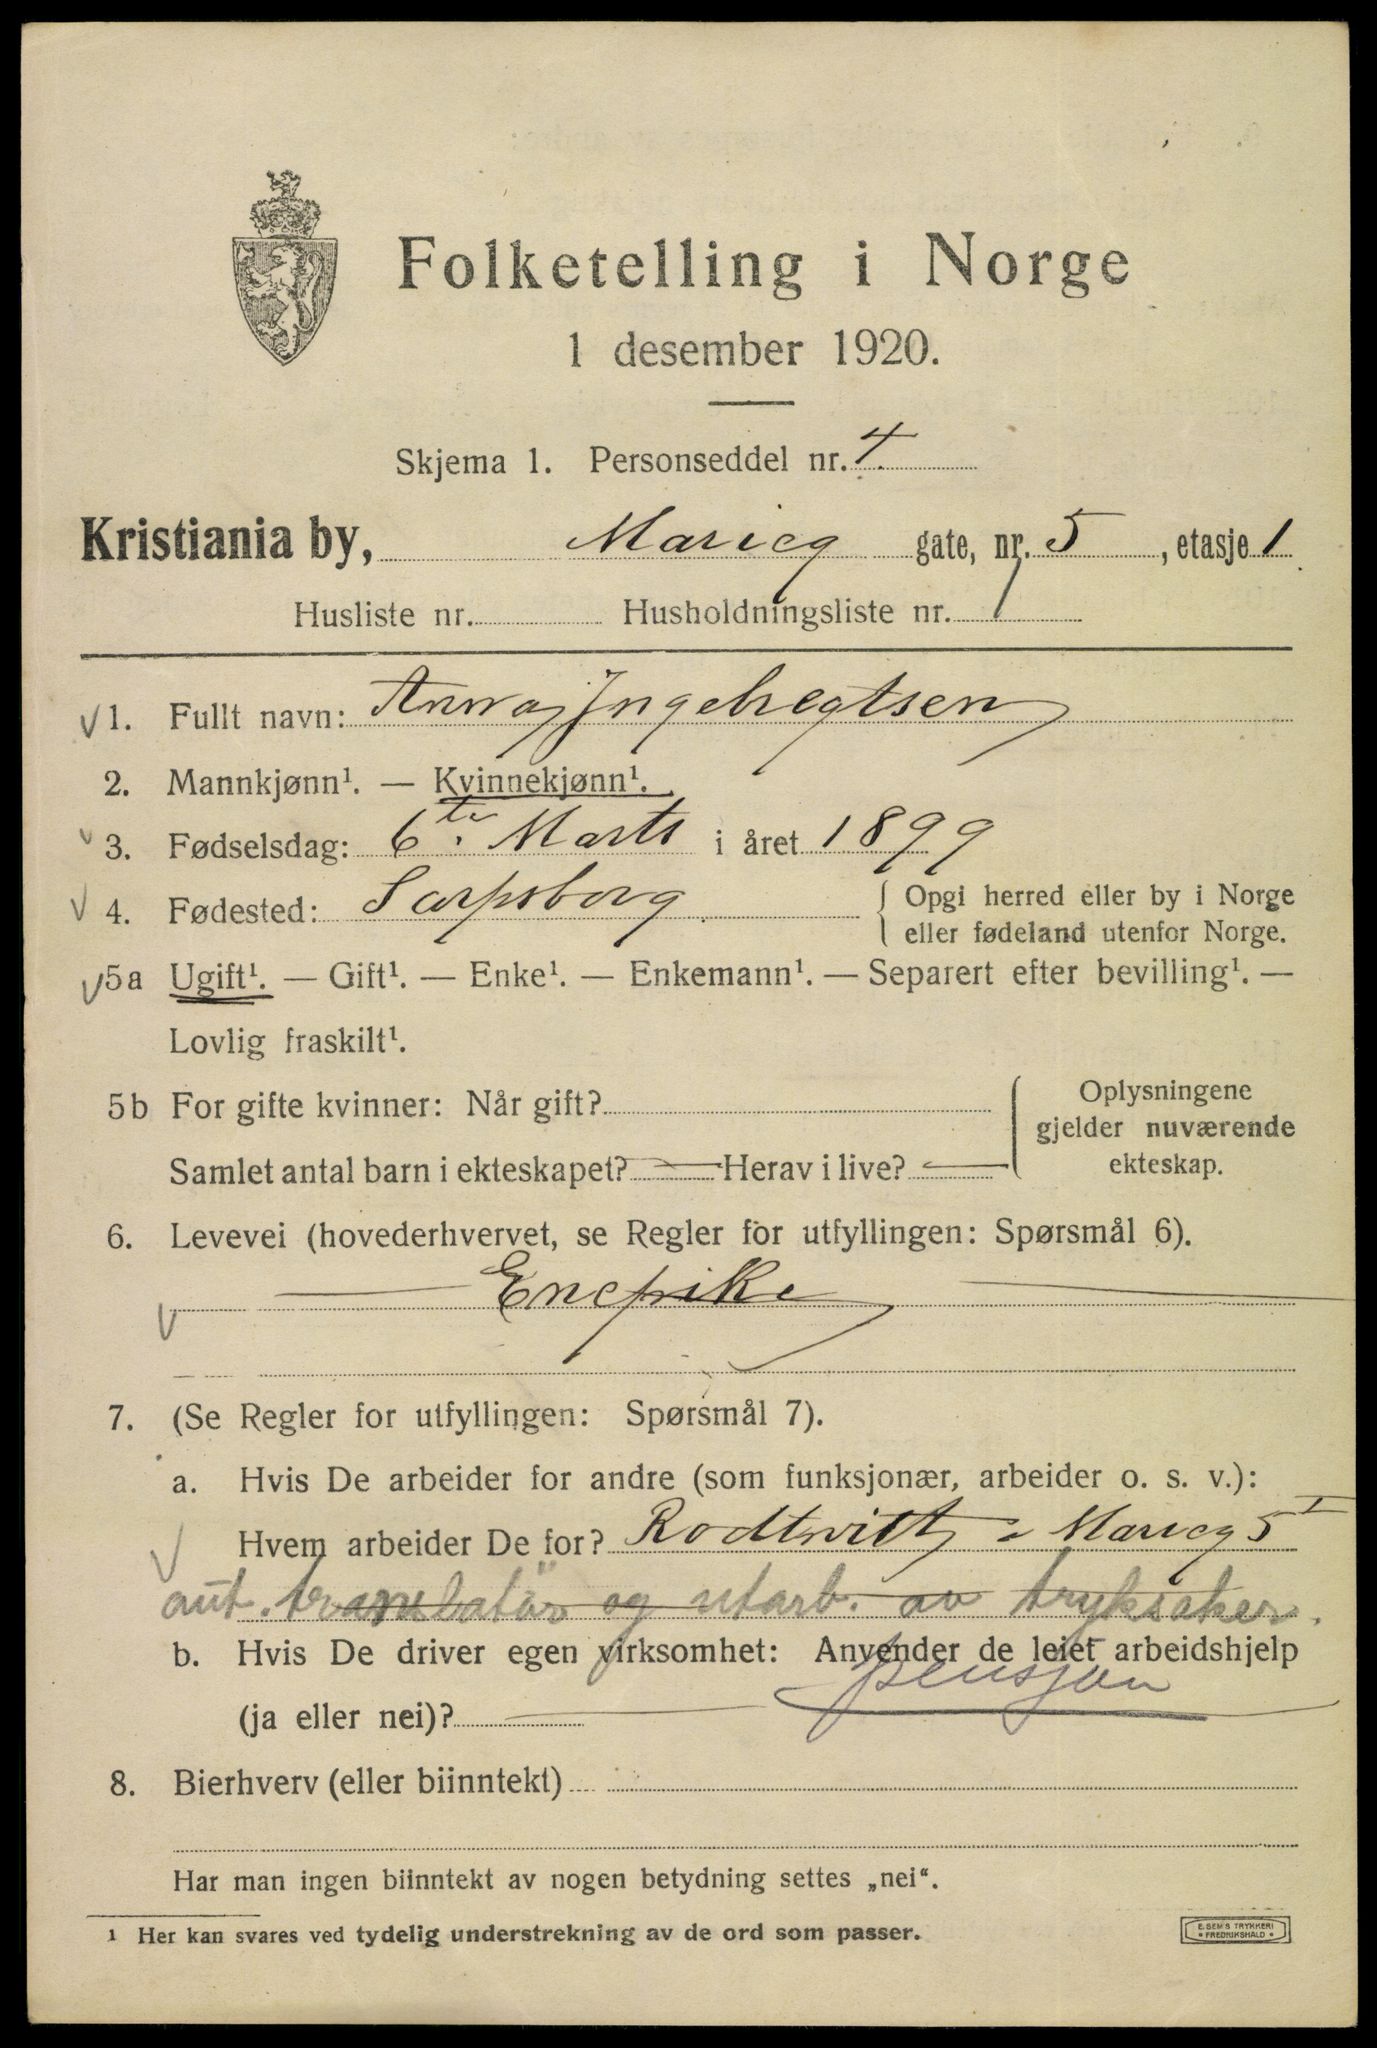 Folketelling i Norge
1 desember 1920.
Skjema 1. Personseddel nr. 4
Kristiania by, Marieg gate, nr. 5, etasje 1
Husliste nr. Husholdningsliste nr. 1
1. Fullt navn: Anna Ingebregtsen
2. Mannkjønn¹. — Kvinnekjønn¹.
3. Fødselsdag: 6te Marts i året 1899
4. Fødested: Sarpsborg { Opgi herred eller by i Norge
eller fødeland utenfor Norge.
5a Ugift¹. — Gift¹. — Enke¹. — Enkemann¹. — Separert efter bevilling¹. —
Lovlig fraskilt¹.
5b For gifte kvinner: Når gift? Oplysningene
gjelder nuværende
Samlet antal barn i ekteskapet? — Herav i live? — ekteskap.
6. Levevei (hovederhvervet, se Regler for utfyllingen: Spørsmål 6).
— Enepike —
7. (Se Regler for utfyllingen: Spørsmål 7).
a. Hvis De arbeider for andre (som funksjonær, arbeider o. s. v.):
Hvem arbeider De for? Rodtwitt Marieg 5 I
aut. translatør og utarb. av tryksaker.
b. Hvis De driver egen virksomhet: Anvender de leiet arbeidshjelp
pensjon
(ja eller nei)? —
8. Bierhverv (eller biinntekt)
Har man ingen biinntekt av nogen betydning settes „nei“.
¹ Her kan svares ved tydelig understrekning av de ord som passer.
E. SEM'S TRYKKERI
• FREDRIKSHALD •